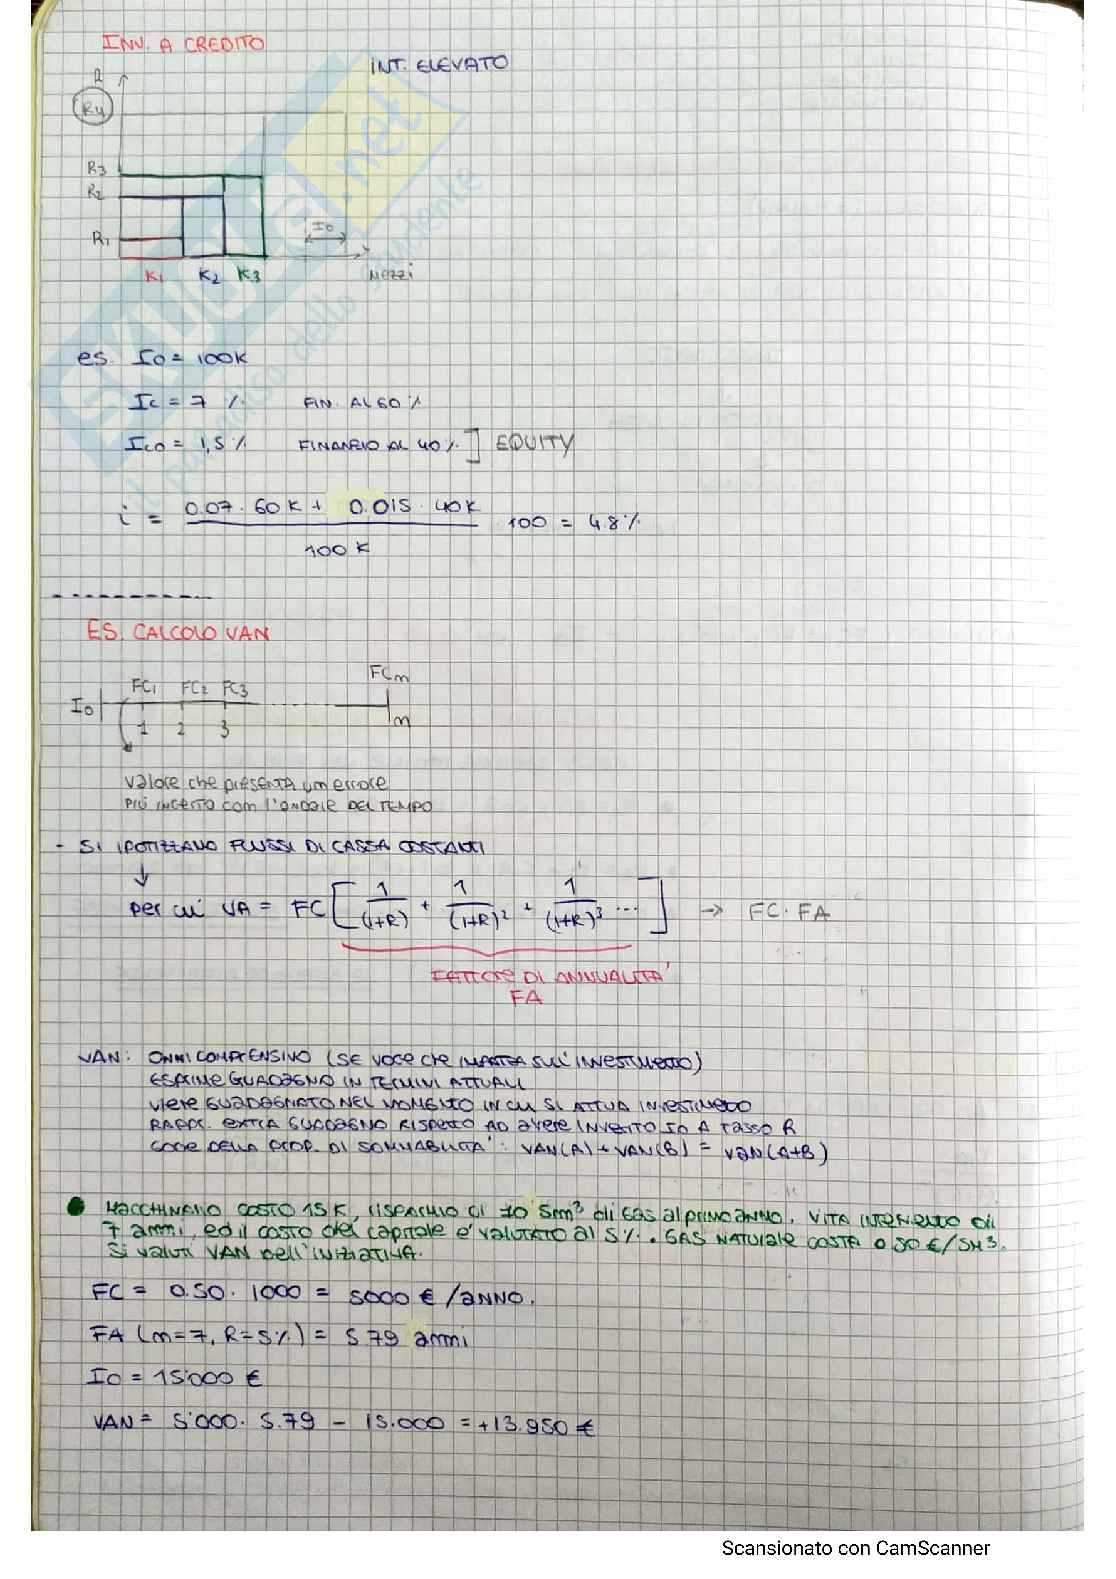 INV. A CREDITO
INT. ELEVATO
R
R4
R3
R2
R1
I0
K1 K2 K3 Mezzi
es. I0 = 100K
Ic = 7 % FIN. AL 60 %
Ico = 1,5 % FINANZIO AL 40 % ] EQUITY
i = 0.07 . 60 K + 0.015 . 40K / 100 K . 100 = 4.8 %
ES. CALCOLO VAN
I0 FC1 FC2 FC3 FCm
1 2 3 m
Valore che presenta un errore
più incerto con l'andare del tempo
- SI IPOTIZZANO FLUSSI DI CASSA COSTANTI
per cui VA = FC [ 1/(1+R) + 1/(1+R)² + 1/(1+R)³ ... ] → FC . FA
FATTORE DI ANNUALITA'
FA
VAN: ONNICOMPRENSIVO (SE VOCE CHE IMPATTA SULL'INVESTIMENTO)
ESPRIME GUADAGNO IN TERMINI ATTUALI
VIENE GUADAGNATO NEL MOMENTO IN CUI SI ATTUA INVESTIMENTO
RAPPR. EXTRA GUADAGNO RISPETTO AD AVERE INVESTITO I0 A TASSO R
GODE DELLA PROP. DI SOMMABILITA': VAN(A) + VAN(B) = VAN(A+B)
MACCHINARIO COSTO 15K, RISPARMIO DI 10 Sm³ di GAS al primo anno. VITA INTERVENTO di
7 anni, ed il costo del capitale e' valutato al 5%. GAS NATURALE COSTA 0.50 €/Sm³.
Si valuti VAN dell'iniziativa.
FC = 0.50 . 1000 = 5000 € / ANNO.
FA (m=7, R=5%) = 5.79 anni
I0 = 15'000 €
VAN = 5'000 . 5.79 - 15.000 = +13.950 €
Scansionato con CamScanner